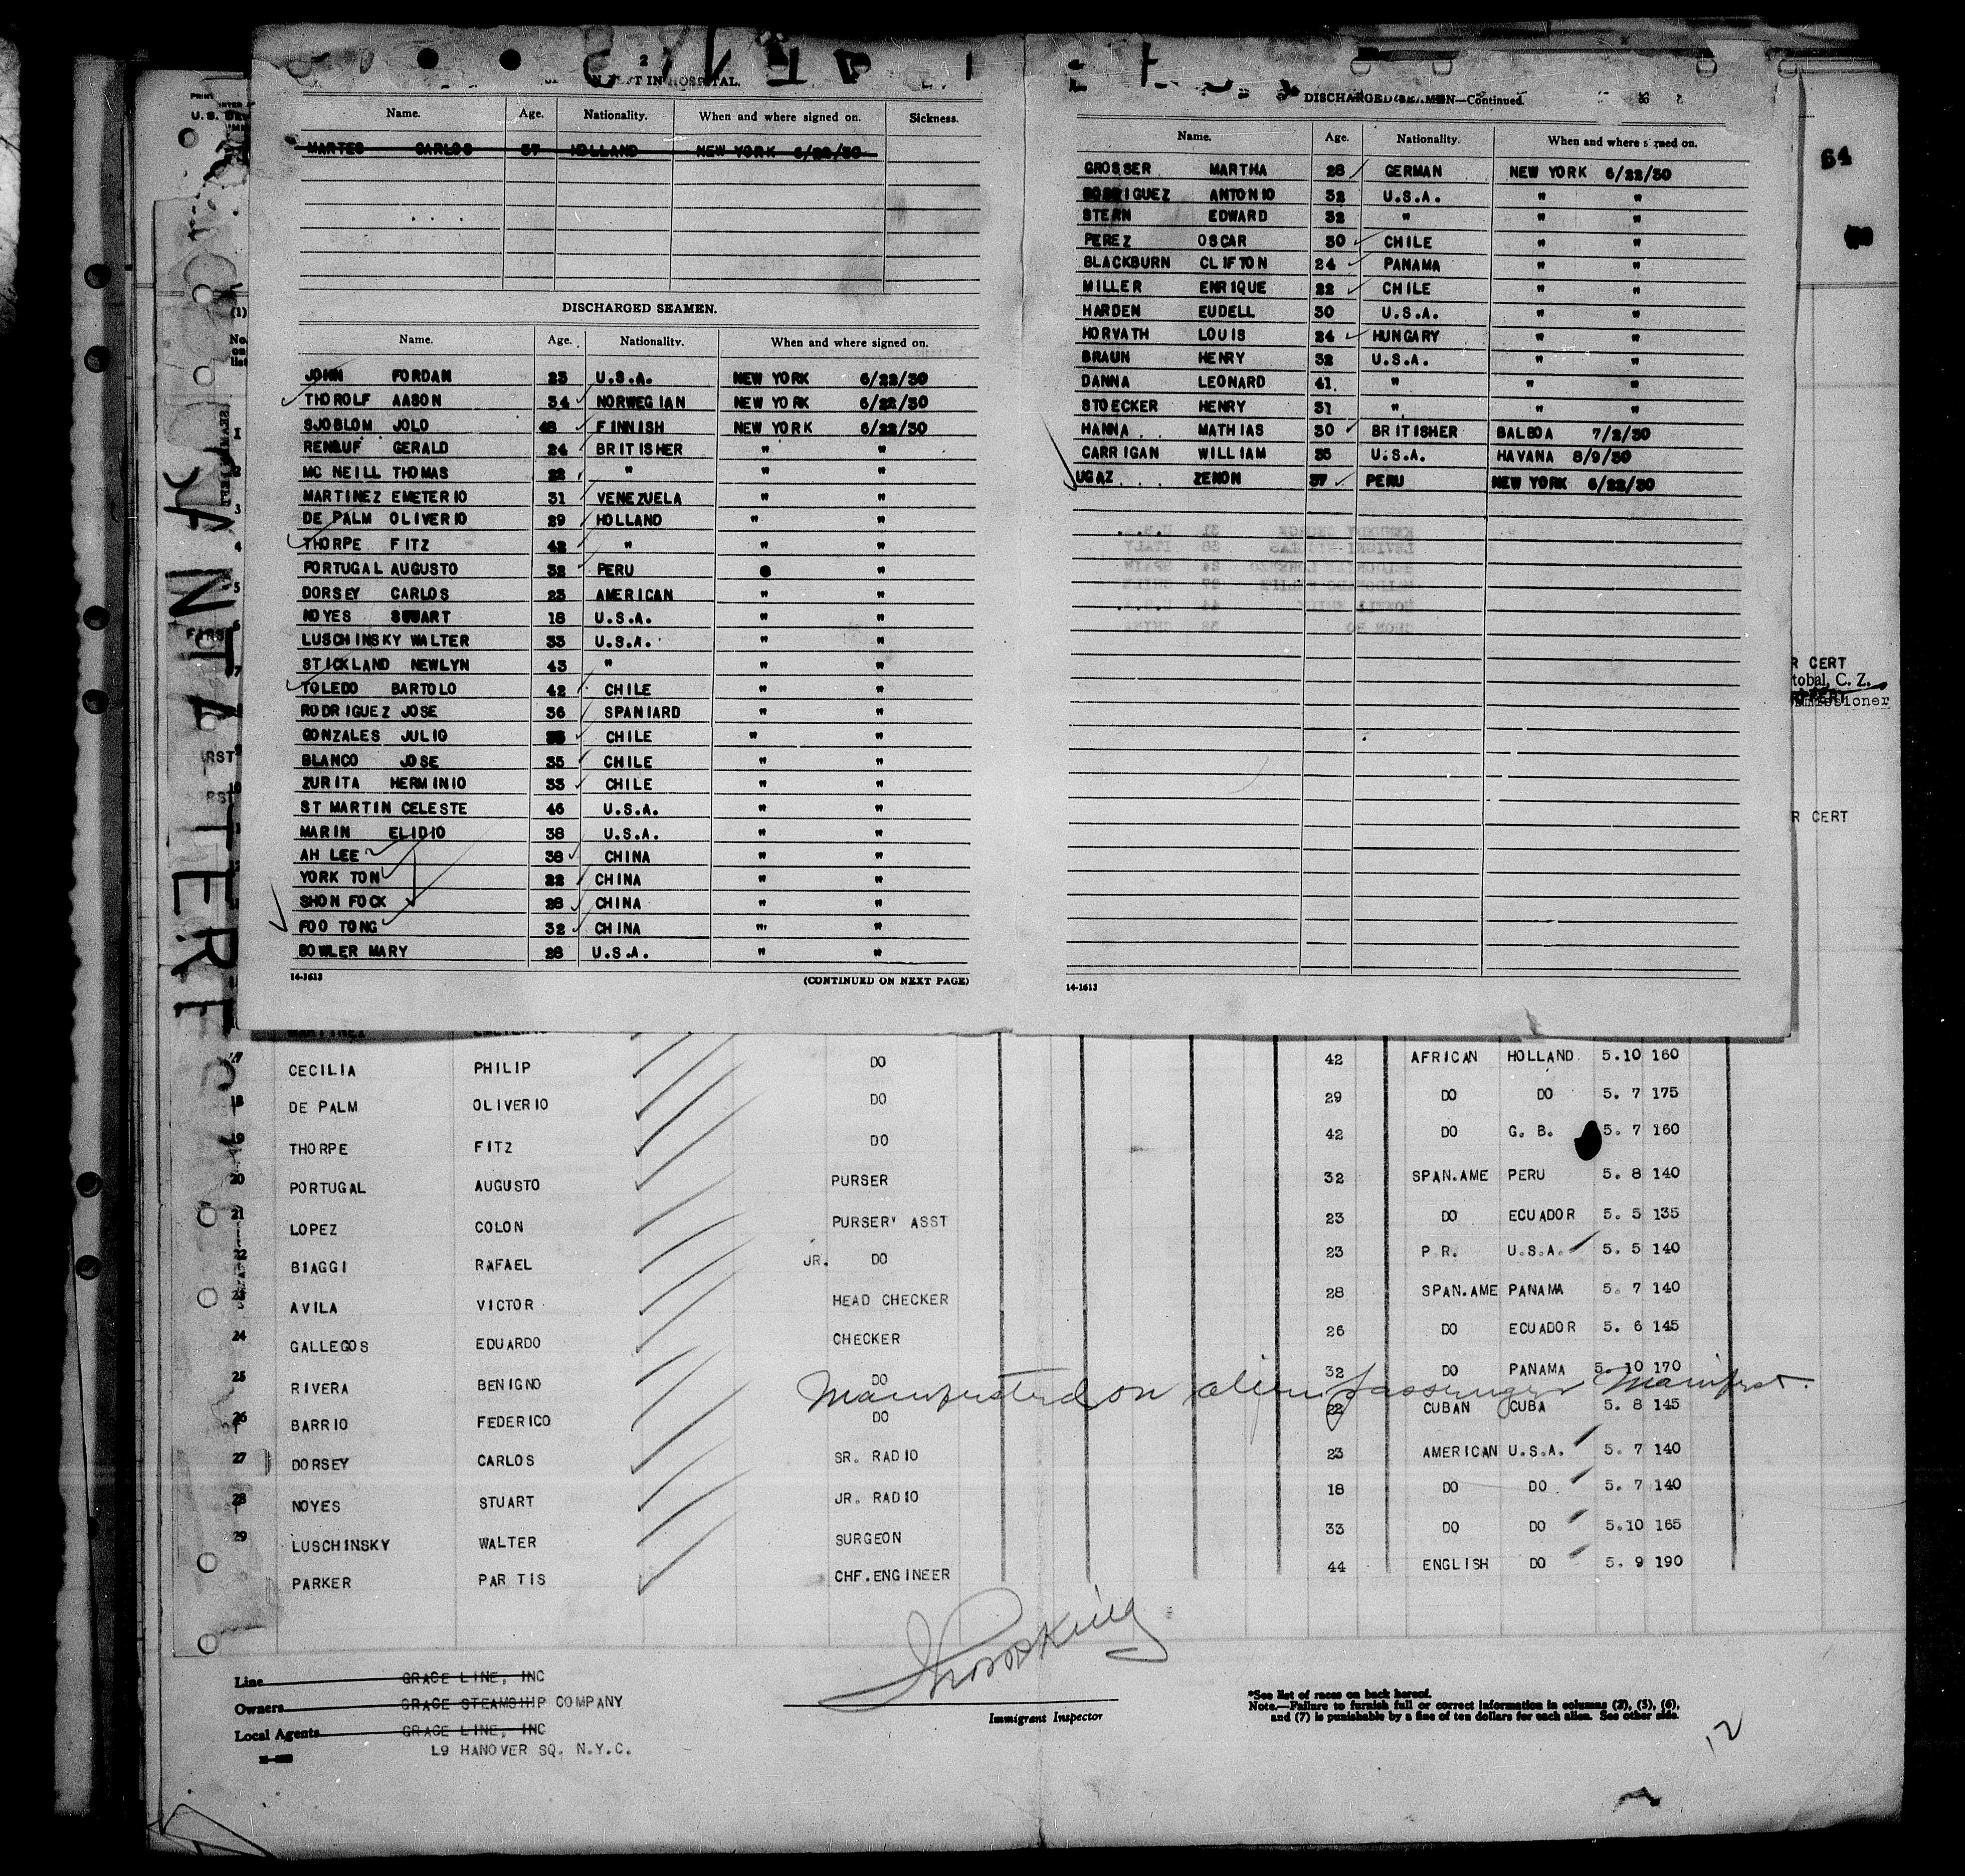 2
IN HOSPITAL.
Name. Age. Nationality. When and where signed on. Sickness.
MARTES CARLOS 37 HOLLAND NEW YORK 6/22/30
DISCHARGED SEAMEN.
Name. Age. Nationality. When and where signed on.
JOHN FORDAN 23 U.S.A. NEW YORK 6/22/30
THOROLF AASON 34 NORWEGIAN NEW YORK 6/22/30
SJOBLOM JOLO 48 FINNISH NEW YORK 6/22/30
RENOUF GERALD 24 BRITISHER " "
MC NEILL THOMAS 22 " " "
MARTINEZ EMETERIO 31 VENEZUELA " "
DE PALM OLIVERIO 29 HOLLAND " "
THORPE FITZ 42 " " "
PORTUGAL AUGUSTO 32 PERU "
DORSEY CARLOS 23 AMERICAN " "
NOYES STUART 18 U.S.A. " "
LUSCHINSKY WALTER 33 U.S.A. " "
STICKLAND NEWLYN 43 " " "
TOLEDO BARTOLO 42 CHILE " "
RODRIGUEZ JOSE 36 SPANIARD " "
GONZALES JULIO CHILE " "
BLANCO JOSE 35 CHILE " "
ZURITA HERMINIO 33 CHILE " "
ST MARTIN CELESTE 46 U.S.A. " "
MARIN ELIDIO 38 U.S.A. " "
AH LEE 38 CHINA " "
YORK TON 22 CHINA " "
SHON FOCK 28 CHINA " "
FOO TONG 32 CHINA " "
BOWLER MARY 28 U.S.A. " "
14-1613 (CONTINUED ON NEXT PAGE)
DISCHARGED SEAMEN—Continued.
Name. Age. Nationality. When and where signed on.
GROSSER MARTHA 28 GERMAN NEW YORK 6/22/30
RODRIGUEZ ANTONIO 32 U.S.A. " "
STERN EDWARD 32 " " "
PEREZ OSCAR 30 CHILE " "
BLACKBURN CLIFTON 24 PANAMA " "
MILLER ENRIQUE 22 CHILE " "
HARDEN EUDELL 30 U.S.A. " "
HORVATH LOUIS 24 HUNGARY " "
BRAUN HENRY 32 U.S.A. " "
DANNA LEONARD 41 " " "
STOECKER HENRY 31 " " "
HANNA MATHIAS 30 BRITISHER BALBOA 7/2/30
CARRIGAN WILLIAM 35 U.S.A. HAVANA 8/9/30
UGAZ ZENON 37 PERU NEW YORK 6/22/30
14-1613
64
R CERT
tobal, C. Z.
R CERT
SANTA TERE
17 CECILIA PHILIP DO 42 AFRICAN HOLLAND 5.10 160
18 DE PALM OLIVERIO DO 29 DO DO 5. 7 175
19 THORPE FITZ DO 42 DO G. B. 5. 7 160
20 PORTUGAL AUGUSTO PURSER 32 SPAN.AME PERU 5. 8 140
21 LOPEZ COLON PURSER' ASST 23 DO ECUADOR 5. 5 135
22 BIAGGI RAFAEL JR. DO 23 P.R. U.S.A. 5. 5 140
23 AVILA VICTOR HEAD CHECKER 28 SPAN.AME PANAMA 5. 7 140
24 GALLEGOS EDUARDO CHECKER 26 DO ECUADOR 5. 6 145
25 RIVERA BENIGNO DO 32 DO PANAMA 5. 10 170
Manifested on alien passenger Manifest.
26 BARRIO FEDERICO DO 22 CUBAN CUBA 5. 8 145
27 DORSEY CARLOS SR. RADIO 23 AMERICAN U.S.A. 5. 7 140
28 NOYES STUART JR. RADIO 18 DO DO 5. 7 140
29 LUSCHINSKY WALTER SURGEON 33 DO DO 5.10 165
PARKER PARTIS CHF.ENGINEER 44 ENGLISH DO 5. 9 190
Line GRACE LINE, INC
Owners GRACE STEAMSHIP COMPANY
Local Agents GRACE LINE, INC
L9 HANOVER SQ. N.Y.C.
Immigrant Inspector
*See list of races on back hereof.
Note.—Failure to furnish full or correct information in columns (2), (5), (6),
and (7) is punishable by a fine of ten dollars for each alien. See other side.
12